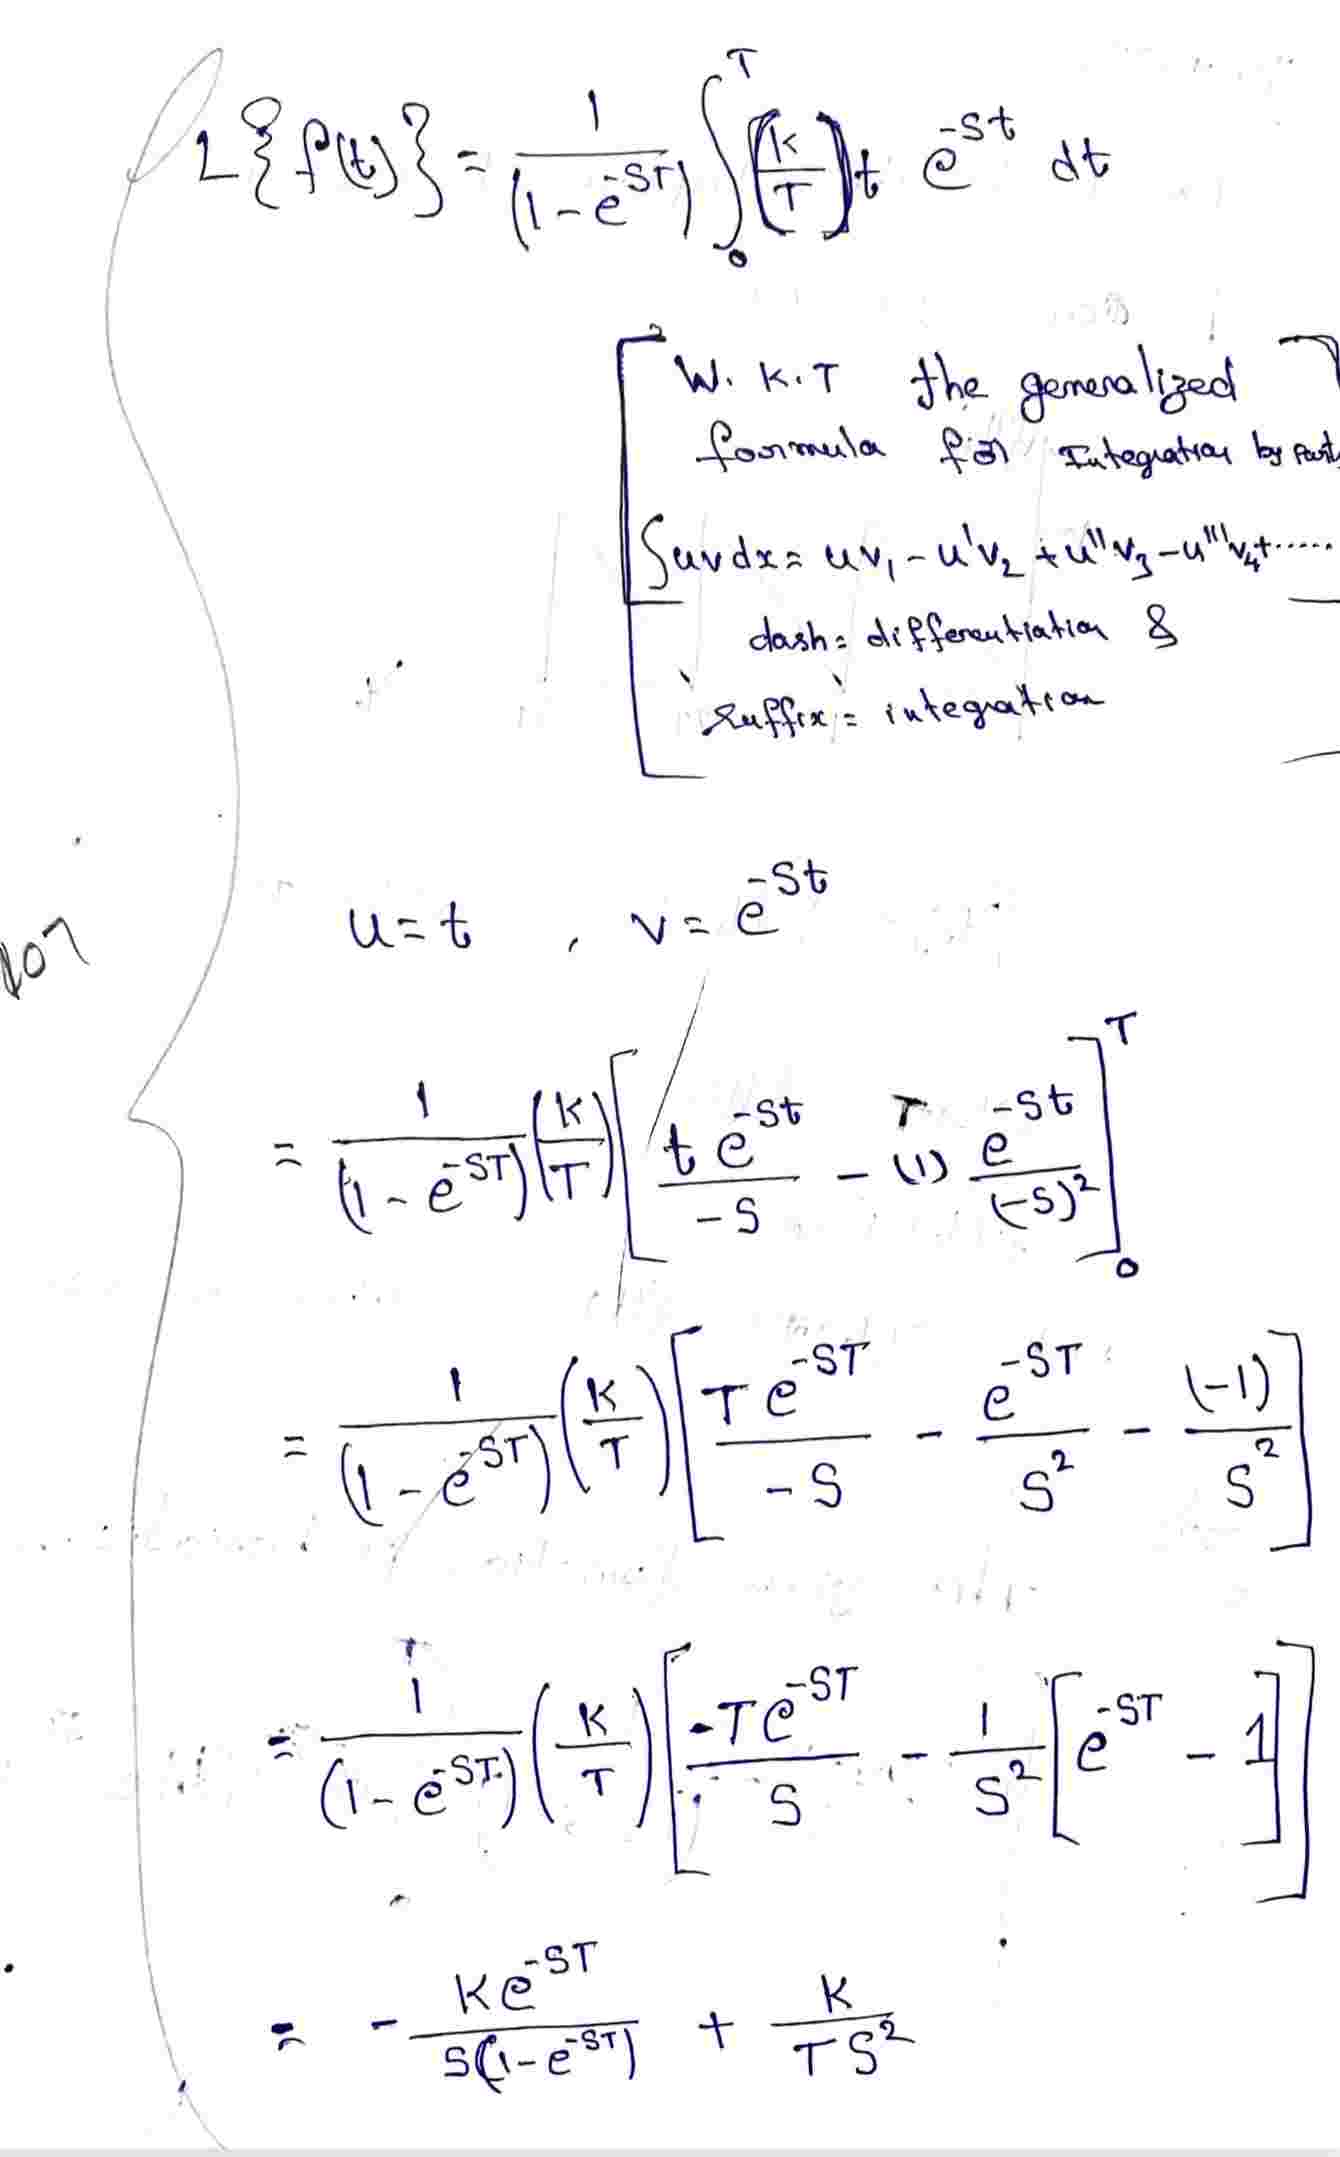 L{f(t)} = 1/(1-e^-ST) ∫_0^T (K/T) t e^-st dt
W.K.T the generalized
formula for Integration by parts
∫uvdx = uv₁ - u'v₂ + u''v₃ - u'''v₄ + ......
dash = differentiation &
suffix = integration
u = t , v = e^-st
= 1/(1-e^-ST) (K/T) [ te^-st/-S - (1) e^-st/(-S)² ]_0^T
= 1/(1-e^-ST) (K/T) [ Te^-ST/-S - e^-ST/S² - (-1)/S² ]
= 1/(1-e^-ST) (K/T) [ -Te^-ST/S - 1/S² [ e^-ST - 1 ] ]
= - Ke^-ST/S(1-e^-ST) + K/TS²